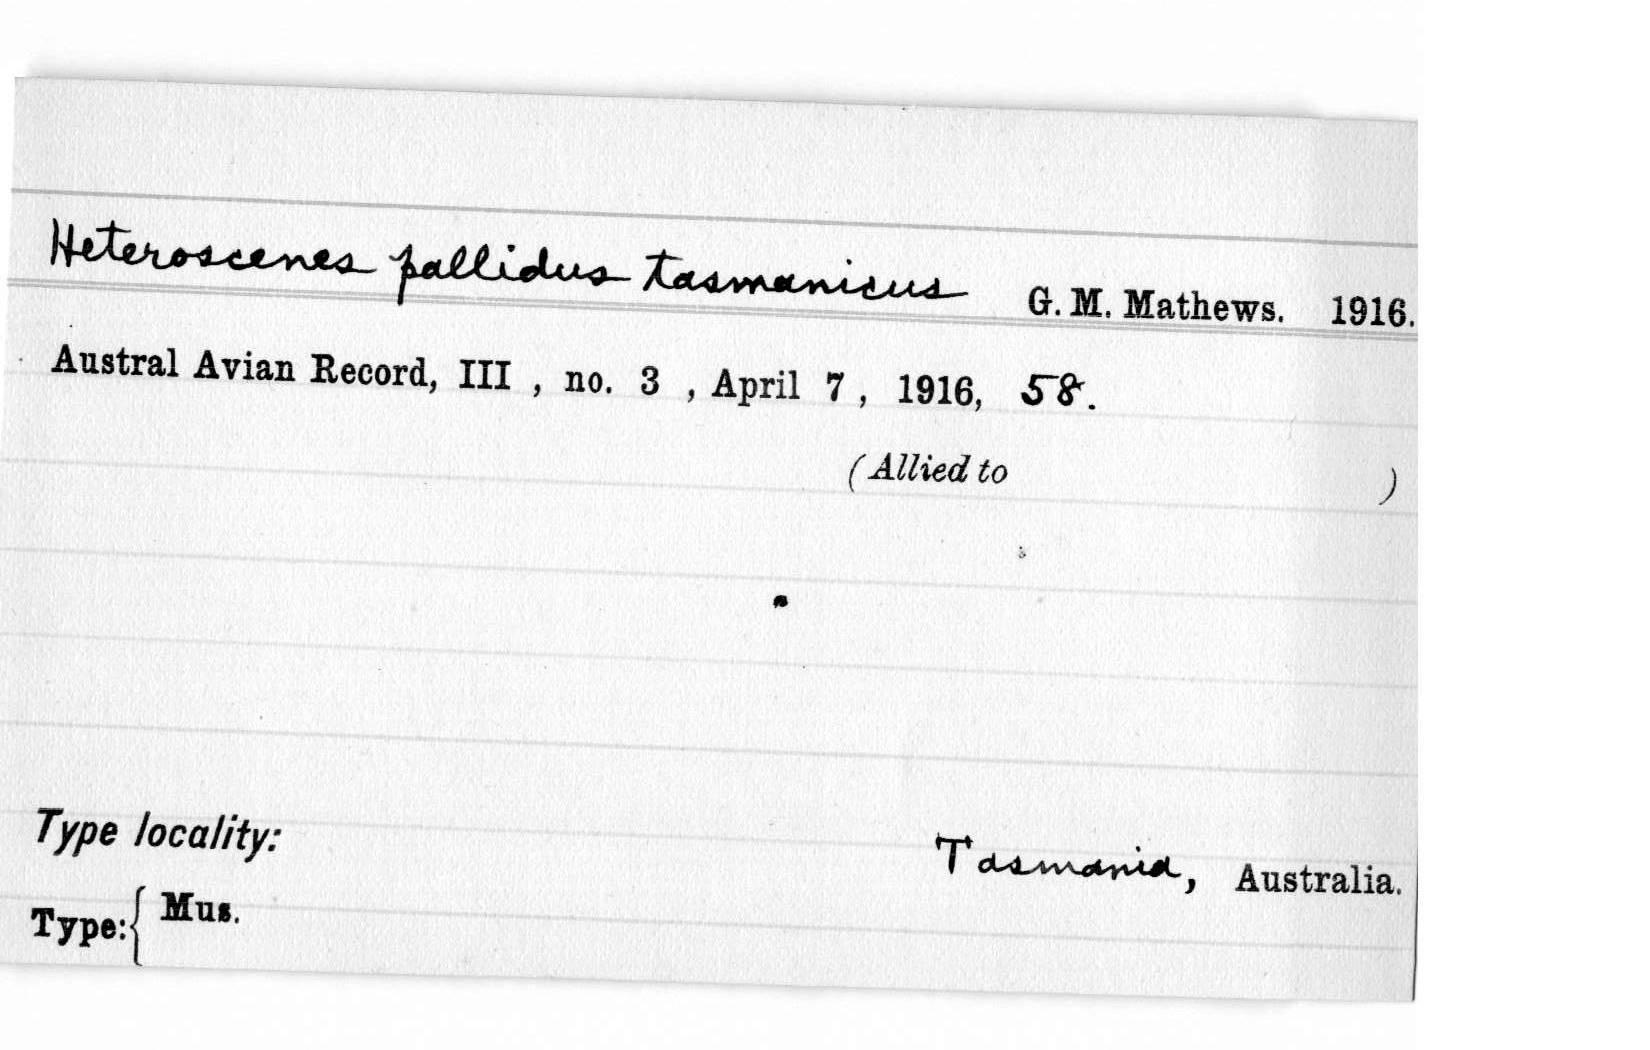 Heteroscenes pallidus tasmanicus G. M. Mathews. 1916.
Austral Avian Record, III , no. 3 , April 7 , 1916, 58.
(Allied to )
Type locality: Tasmania, Australia.
Type: { Mus.